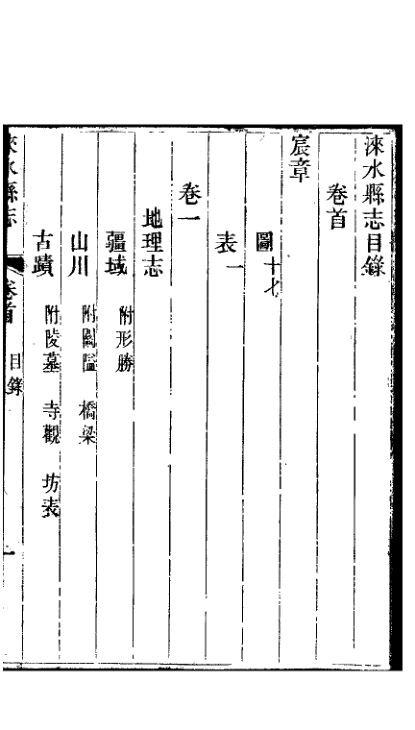 淶水縣志目錄
卷首
宸章
圖十九
表一
卷一
地理志
疆域 附形勝
山川 附關隘 橋梁
古蹟 附陵墓 寺觀 坊表
淶水縣志 卷首 目錄 一